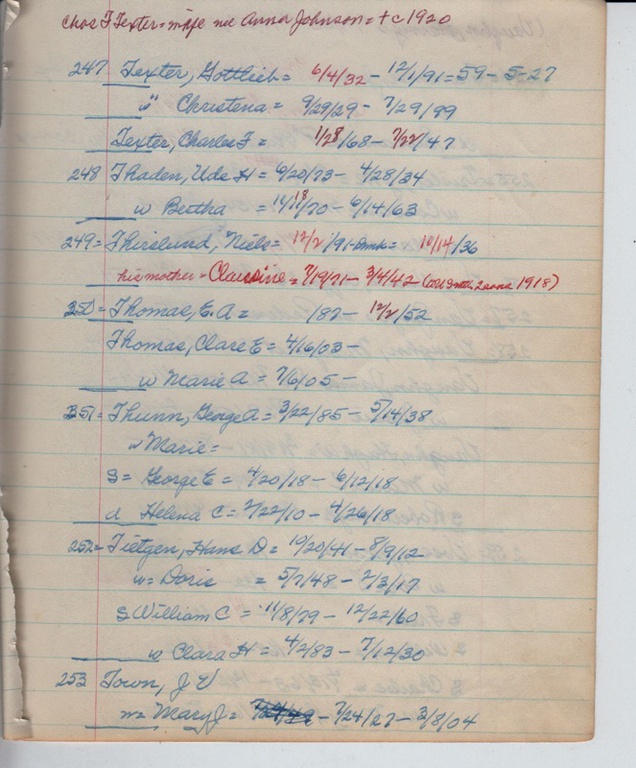 Chas F Texter = wife nee Anna Johnson = + c 1920
247 Texter, Gottlieb = 6/4/32 - 12/1/91 = 59 - 5-27
w" Christena = 9/29/29 - 7/29/99
Texter, Charles F = 1/28/68 - 7/22/47
248 Thaden, Ude H = 9/20/73 - 4/28/34
w Bertha = 11/18/70 - 6/14/63
249 = Thirslund, Niels = 12/2/91 - = 10/14/36
his mother = Clausine = 7/9/71 - 3/4/42 1918)
250 = Thomas, E. A = /87 - 12/2/52
Thomas, Clare E = 4/16/03 -
w Marie A = 7/6/05 -
251 = Thunn, George A = 3/22/85 - 5/14/38
w Marie =
S = George E = 4/20/18 - 6/12/18
d Helena C = 2/22/10 - 4/26/18
252 = Tietgen, Hans D = 10/20/41 - 8/9/12
w = Doris = 5/7/48 - 2/3/17
S William C = 11/8/79 - 12/22/60
w Clara H = 4/2/83 - 7/12/30
253 Town, J V
w = Mary J = - 7/24/27 - 3/8/04